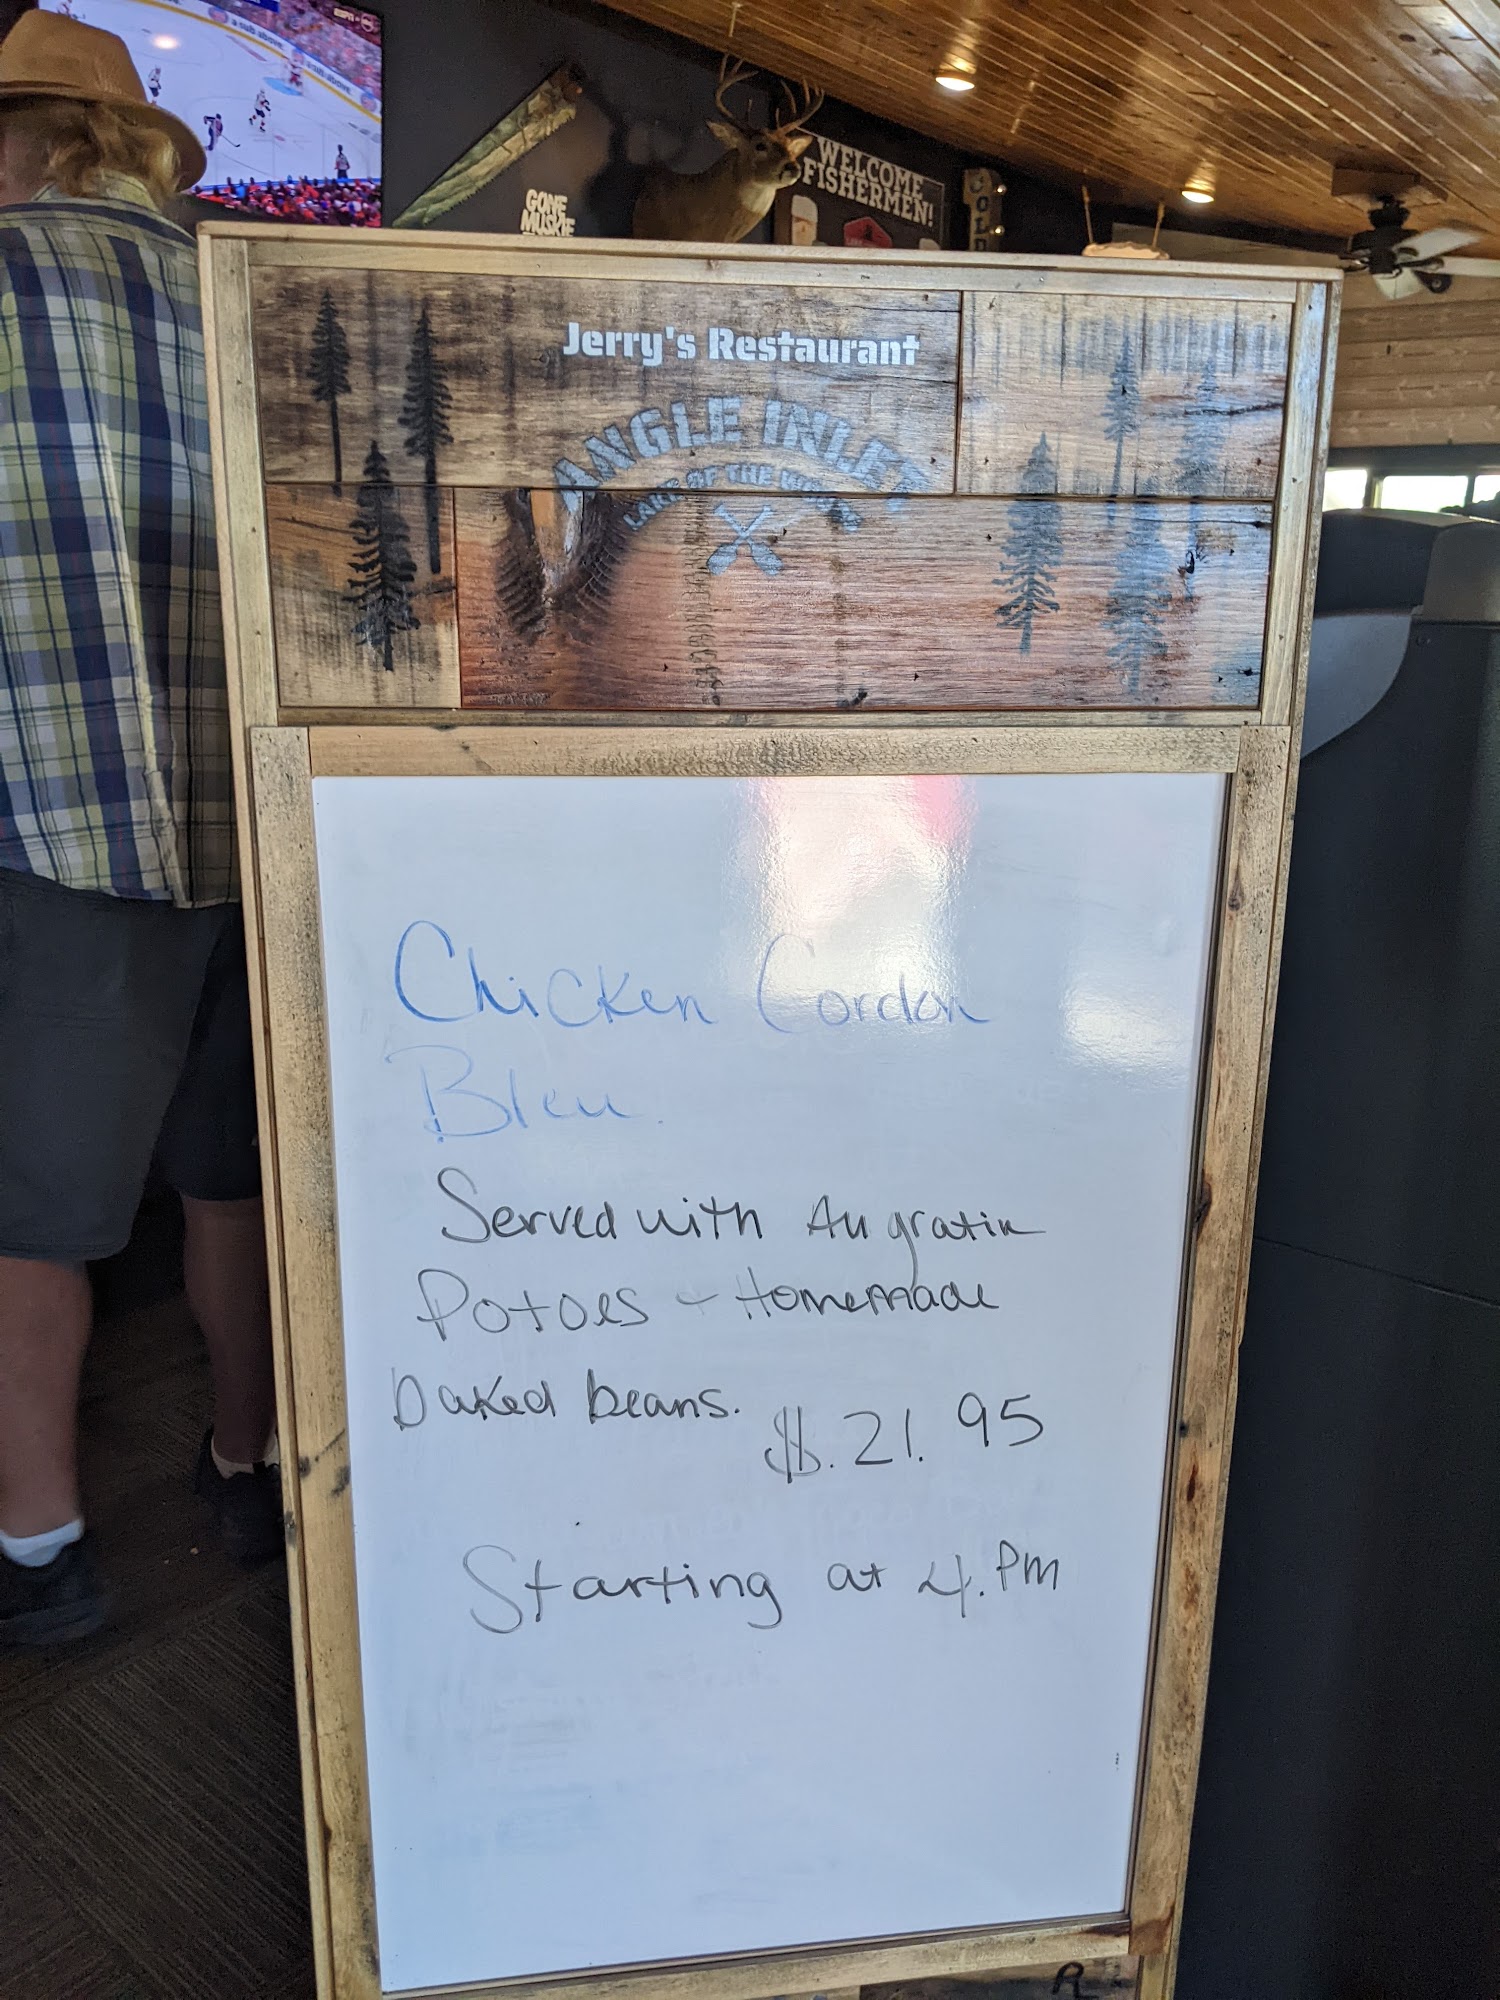 a sub above.
a sub above.
ESPN+
GONE
MUSKIE
WELCOME
FISHERMEN!
COLD
Jerry's Restaurant
ANGLE INLET
LAKE OF THE WOODS
Chicken Cordon
Bleu
Served with Au gratin
Potoes + Homemade
baked beans.
$.21.95
Starting at 4.Pm